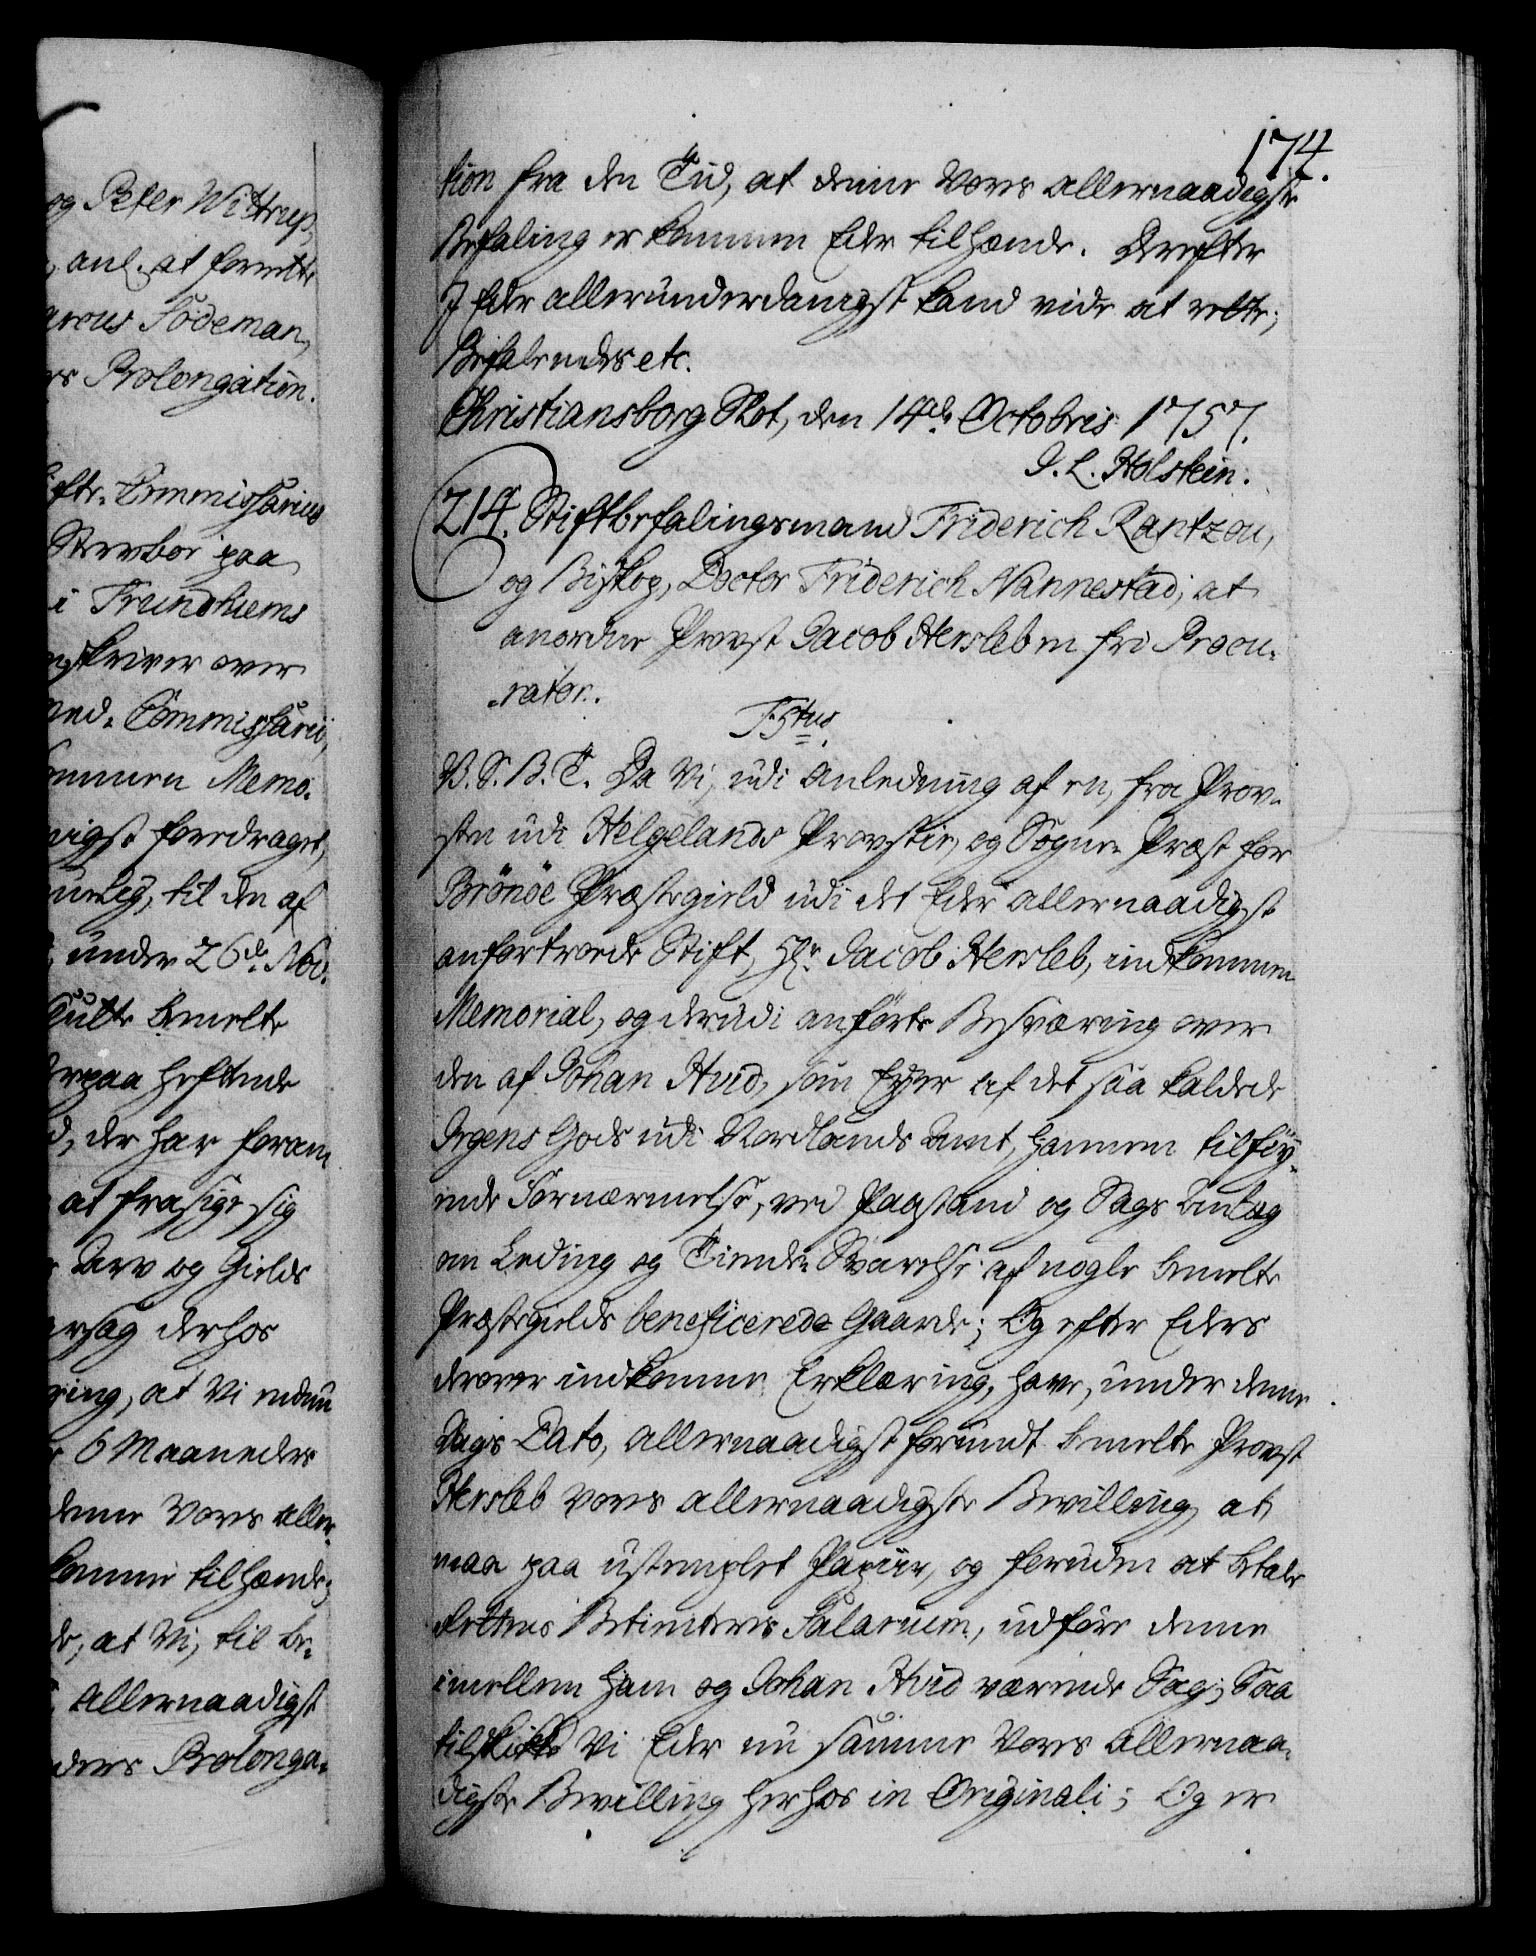 og Peter Wittrup,
anl. at forrette
Födeman,
Prolongation.
Commissarius
Stervboe paa
i Trundhiems
skriver over
Commissarii,
Memo-
foredraget,
til den af
under 26de Nov.
bemelte
paa heftende
der har foraar
at frasige sig
Arv og Gields
derhos
at Vi endnu
6 Maaneder
denne Vores aller-
komme tilhænde;
at Vi, til be-
Allernaadigst
Prolonga-
174.
tion fra den Tid, at denne Vores allernaadigste
Befaling er kommen Eder tilhænde. Derefter
I Eder allerunderdanigst kand vide at rette;
Befalendes etc.
Christiansborg Slot, den 14de Octobris 1757.
J. L. Holstein.
214. Stiftbefalingsmand Friderich Rantzou,
og Biskop, Doctor Friderich Nannestad, at
anordne Provst Jacob Hersleb en fri Procu-
rator.
F5tus.
V. S. B. T. Da Vi, udi Anledning af en, fra Prov-
sten udi Helgelands Provstie, og Sogne-Præst for
Brönöe Præstegield udi det Eder allernaadigst
anfortroede Stift, Hr. Jacob Hersleb, indkommen
Memorial, og derudi anførte Besværing over
den af Johan Hvid, som Eyer af det saa kaldede
Irgens Gods udi Nordlands Amt, hannem tilføy-
ende Fornærmelse, ved Paastand og Sags Anlæg
om Leding og Tiende-Svarelse af nogle bemelte
Præstegields beneficerede Gaarde; Og efter Eders
derover indkomne Erklæring, have, under denne
Dags Dato, allernaadigst forundt bemelte Provst
Hersleb Vores allernaadigste Bevilling, at
maa paa ustemplet Papiir, og foruden at betale
Rettens Betienteres Salarium, udføre denne
imellem ham og Johan Hvid værende Sag; Saa
tilskikke Vi Eder nu samme Vores allernaa-
digste Bevilling herhos in Originali; Og er